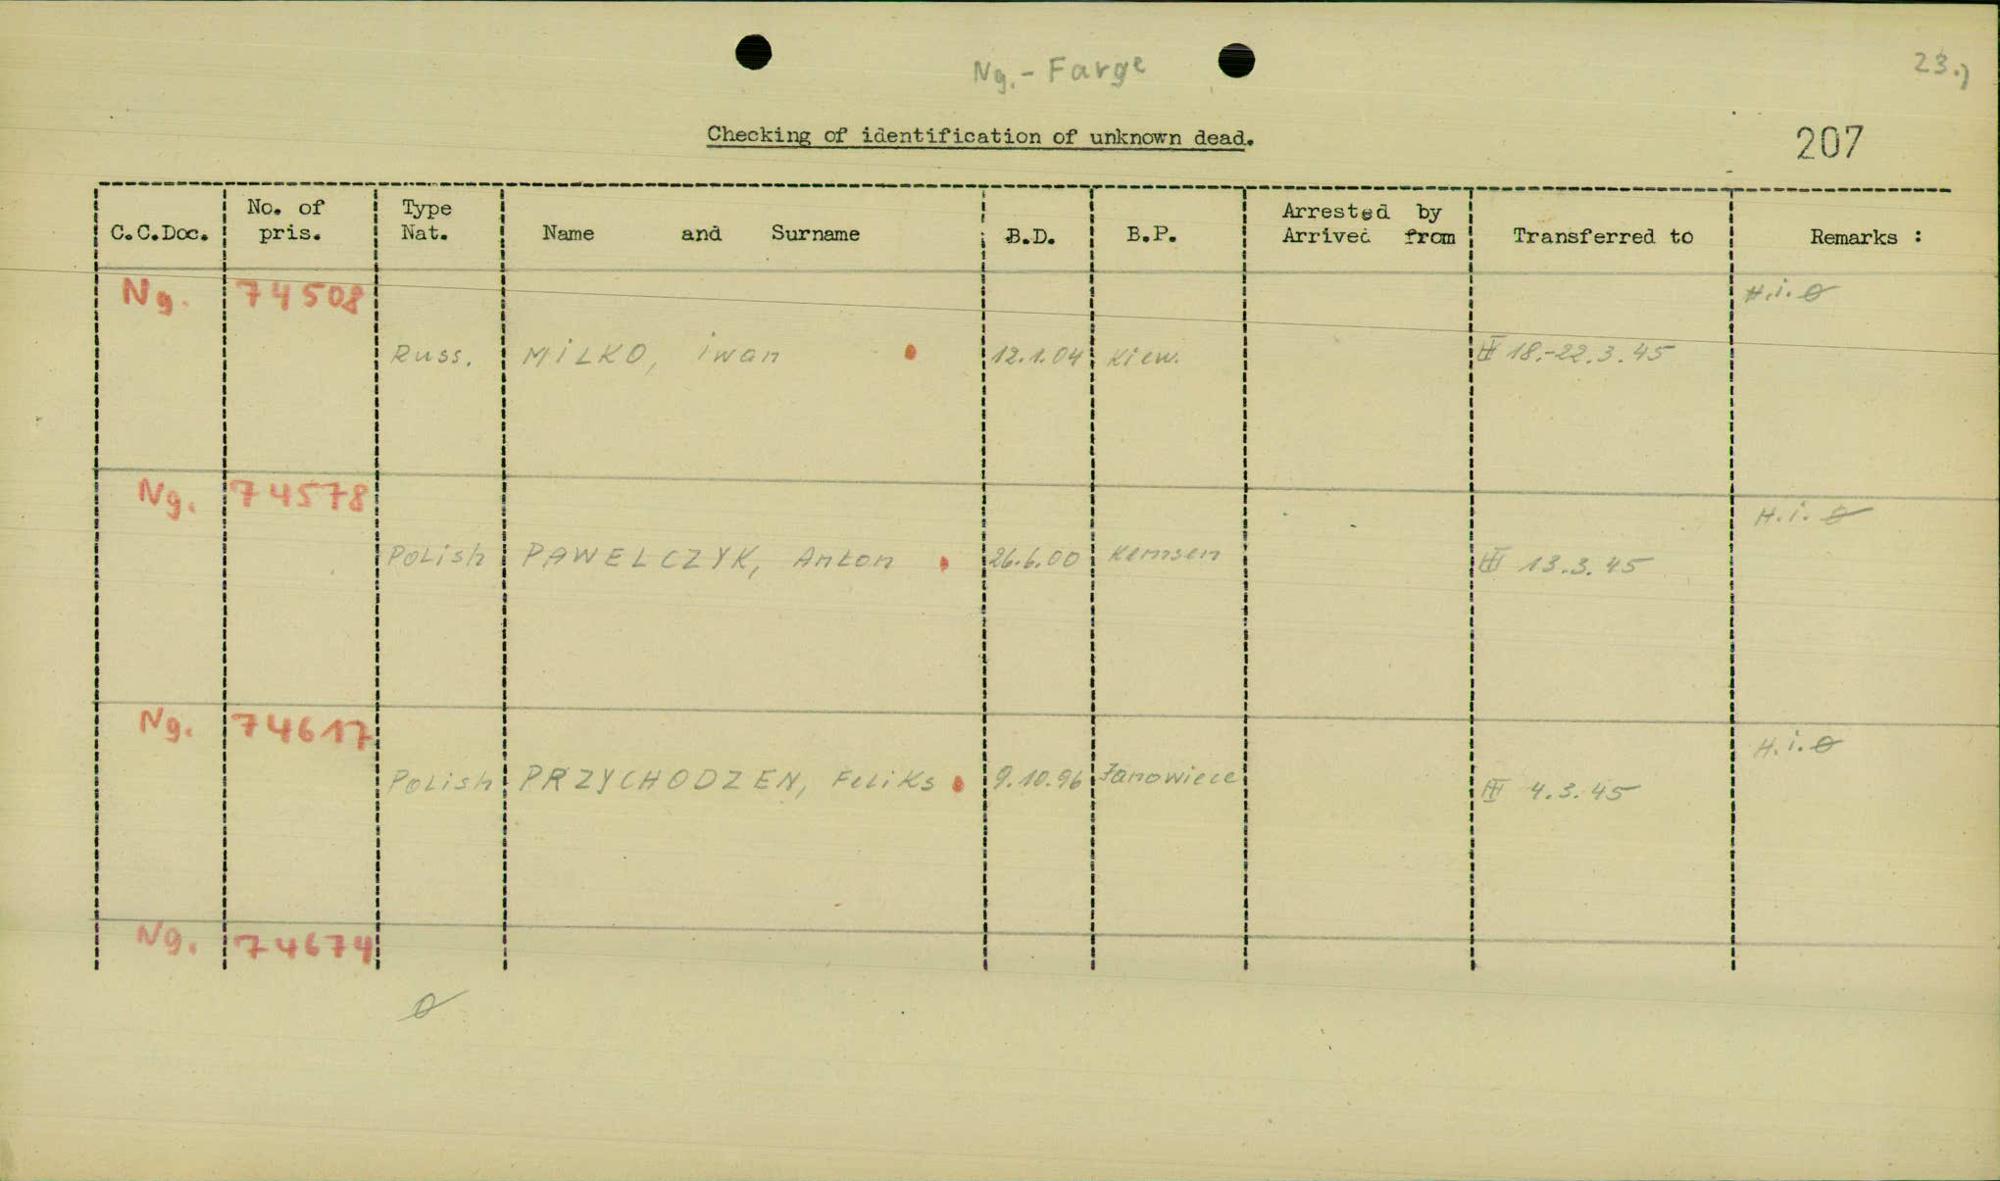 Ng.- Farge
23.)
Checking of identification of unknown dead.
207
C.C.Doc. No. of pris. Type Nat. Name and Surname B.D. B.P. Arrested by Arrived from Transferred to Remarks :
Ng. 74508 H.i.
Russ. MiLKO, iwan 12.1.04 Kiew. 18.-22.3.45
Ng. 74578 H.i.
Polish PAWELCZYK, Anton 26.6.00 Kemsen 13.3.45
Ng. 74617 H.i.
Polish PRZYCHODZEN, Feliks 9.10.96 Janowiece 4.3.45
Ng. 74674